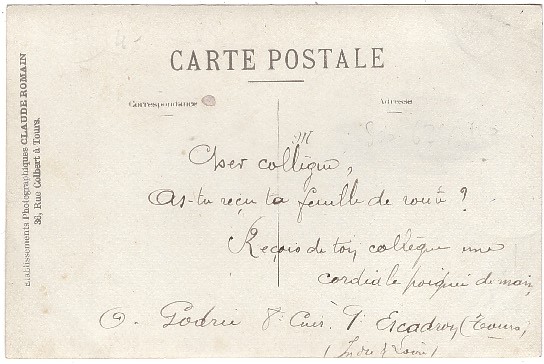 CARTE POSTALE
Correspondance
Adresse
Etablissements Photographiques CLAUDE ROMAIN
36, Rue Colbert à Tours.
Cher collègue,
As-tu reçu ta feuille de route ?
Reçois de ton collègue une
cordiale poignée de main,
G. Godrie 8e Cuir. 1er Escadron (Tours,
(Indre & Loire)